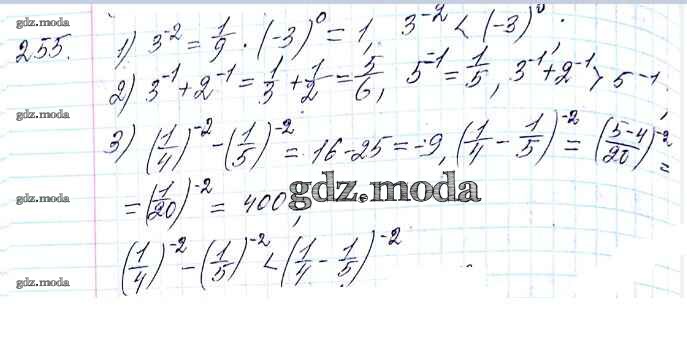 gdz.moda
255. 1) 3^{-2} = \frac{1}{9} \cdot (-3)^0 = 1, 3^{-2} < (-3)^0.
gdz.moda
2) 3^{-1} + 2^{-1} = \frac{1}{3} + \frac{1}{2} = \frac{5}{6}, 5^{-1} = \frac{1}{5}, 3^{-1} + 2^{-1} > 5^{-1},
gdz.moda
3) (\frac{1}{4})^{-2} - (\frac{1}{5})^{-2} = 16 - 25 = -9, (\frac{1}{4} - \frac{1}{5})^{-2} = (\frac{5-4}{20})^{-2} =
gdz.moda
= (\frac{1}{20})^{-2} = 400,
gdz.moda
(\frac{1}{4})^{-2} - (\frac{1}{5})^{-2} < (\frac{1}{4} - \frac{1}{5})^{-2}
gdz.moda